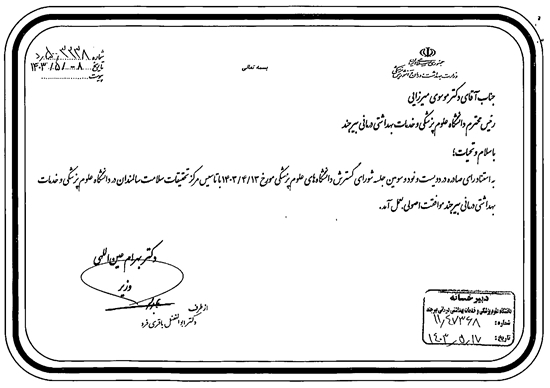 شماره ۵۰۰/۳۲۳۸/د
تاریخ ۱۴۰۳/۵/۰۸
پیوست
بسمه تعالی
جمهوری اسلامی ایران
وزارت بهداشت، درمان و آموزش پزشکی
جناب آقای دکتر موسوی میرزایی
رئیس محترم دانشگاه علوم پزشکی و خدمات بهداشتی درمانی بیرجند
با سلام و تحیات؛
به استناد رای صادره در دویست و نود و سومین جلسه شورای گسترش دانشگاه‌های علوم پزشکی مورخ ۱۴۰۳/۴/۱۳ با تاسیس مرکز تحقیقات سلامت سالمندان در دانشگاه علوم پزشکی و خدمات
بهداشتی درمانی بیرجند موافقت اصولی بعمل آمد.
دکتر بهرام عین اللهی
وزیر
از طرف
دکتر ابوالفضل باقری فرد
دبیرخانه
دانشگاه علوم پزشکی و خدمات بهداشتی درمانی بیرجند
شماره: ۱۱/۴۷۳۶۸
تاریخ: ۱۴۰۳/۰۵/۱۷